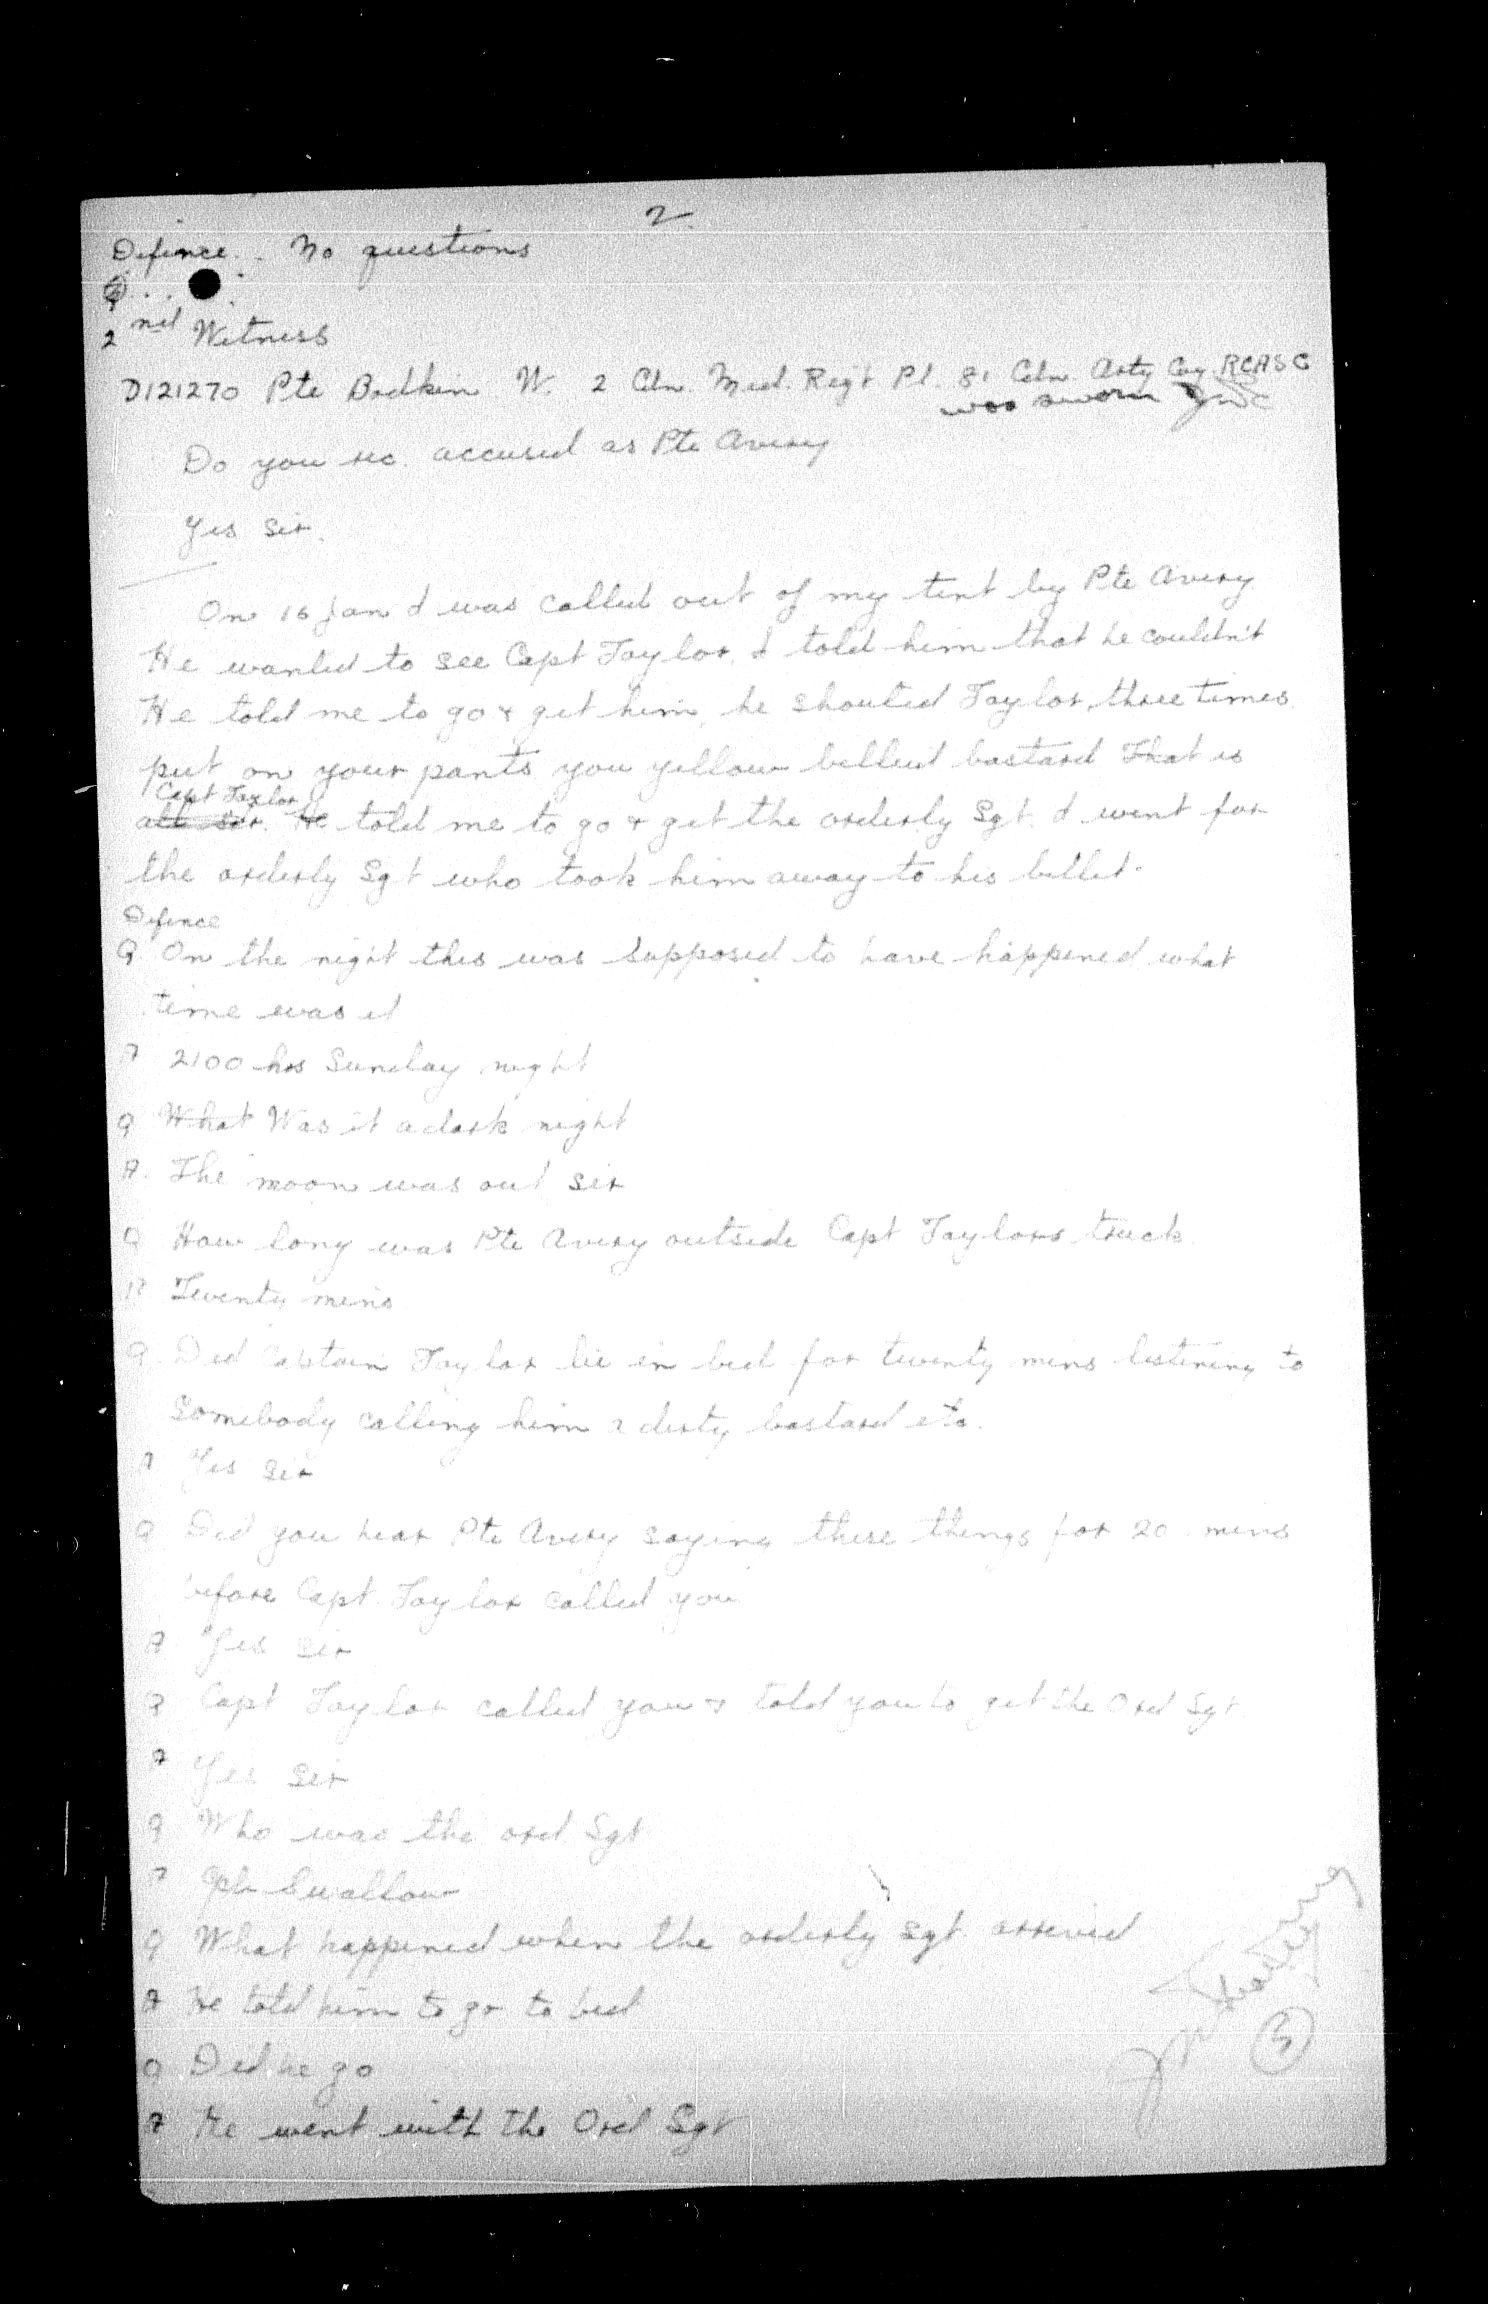 2
Defence. . No questions
Q . . .
2nd Witness
D121270 Pte Bodkin W. 2 Cdn. Med. Reg't Pl. 81 Cdn. Arty Coy RCASC
was sworn
Do you rec. accused as Pte Avery
Yes Sir.
On 16 Jan I was called out of my tent by Pte Avery
He wanted to see Capt Taylor, I told him that he couldn't
He told me to go & get him, he shouted Taylor, three times
put on your pants you yellow bellied bastard That is
Capt Taylor
all sir. He told me to go & get the orderly Sgt. I went for
the orderly Sgt who took him away to his billet.
Defence
Q. On the night this was supposed to have happened what
time was it
A 2100 hrs Sunday night
Q What Was it a dark night
A. The moon was out sir
Q How long was Pte Avery outside Capt Taylors truck
A Twenty mins
Q. Did Captain Taylor lie in bed for twenty mins listening to
somebody calling him a dirty bastard etc.
A Yes Sir
Q Did you hear Pte Avery saying these things for 20 mins
before Capt. Taylor called you
A Yes Sir
Q Capt Taylor called you & told you to get the Ord Sgt.
A Yes Sir
Q Who was the ord Sgt
A Cpl Swallow
Q What happened when the orderly sgt arrived
A He told him to go to bed
Q Did he go
A He went with the Ord Sgt
3